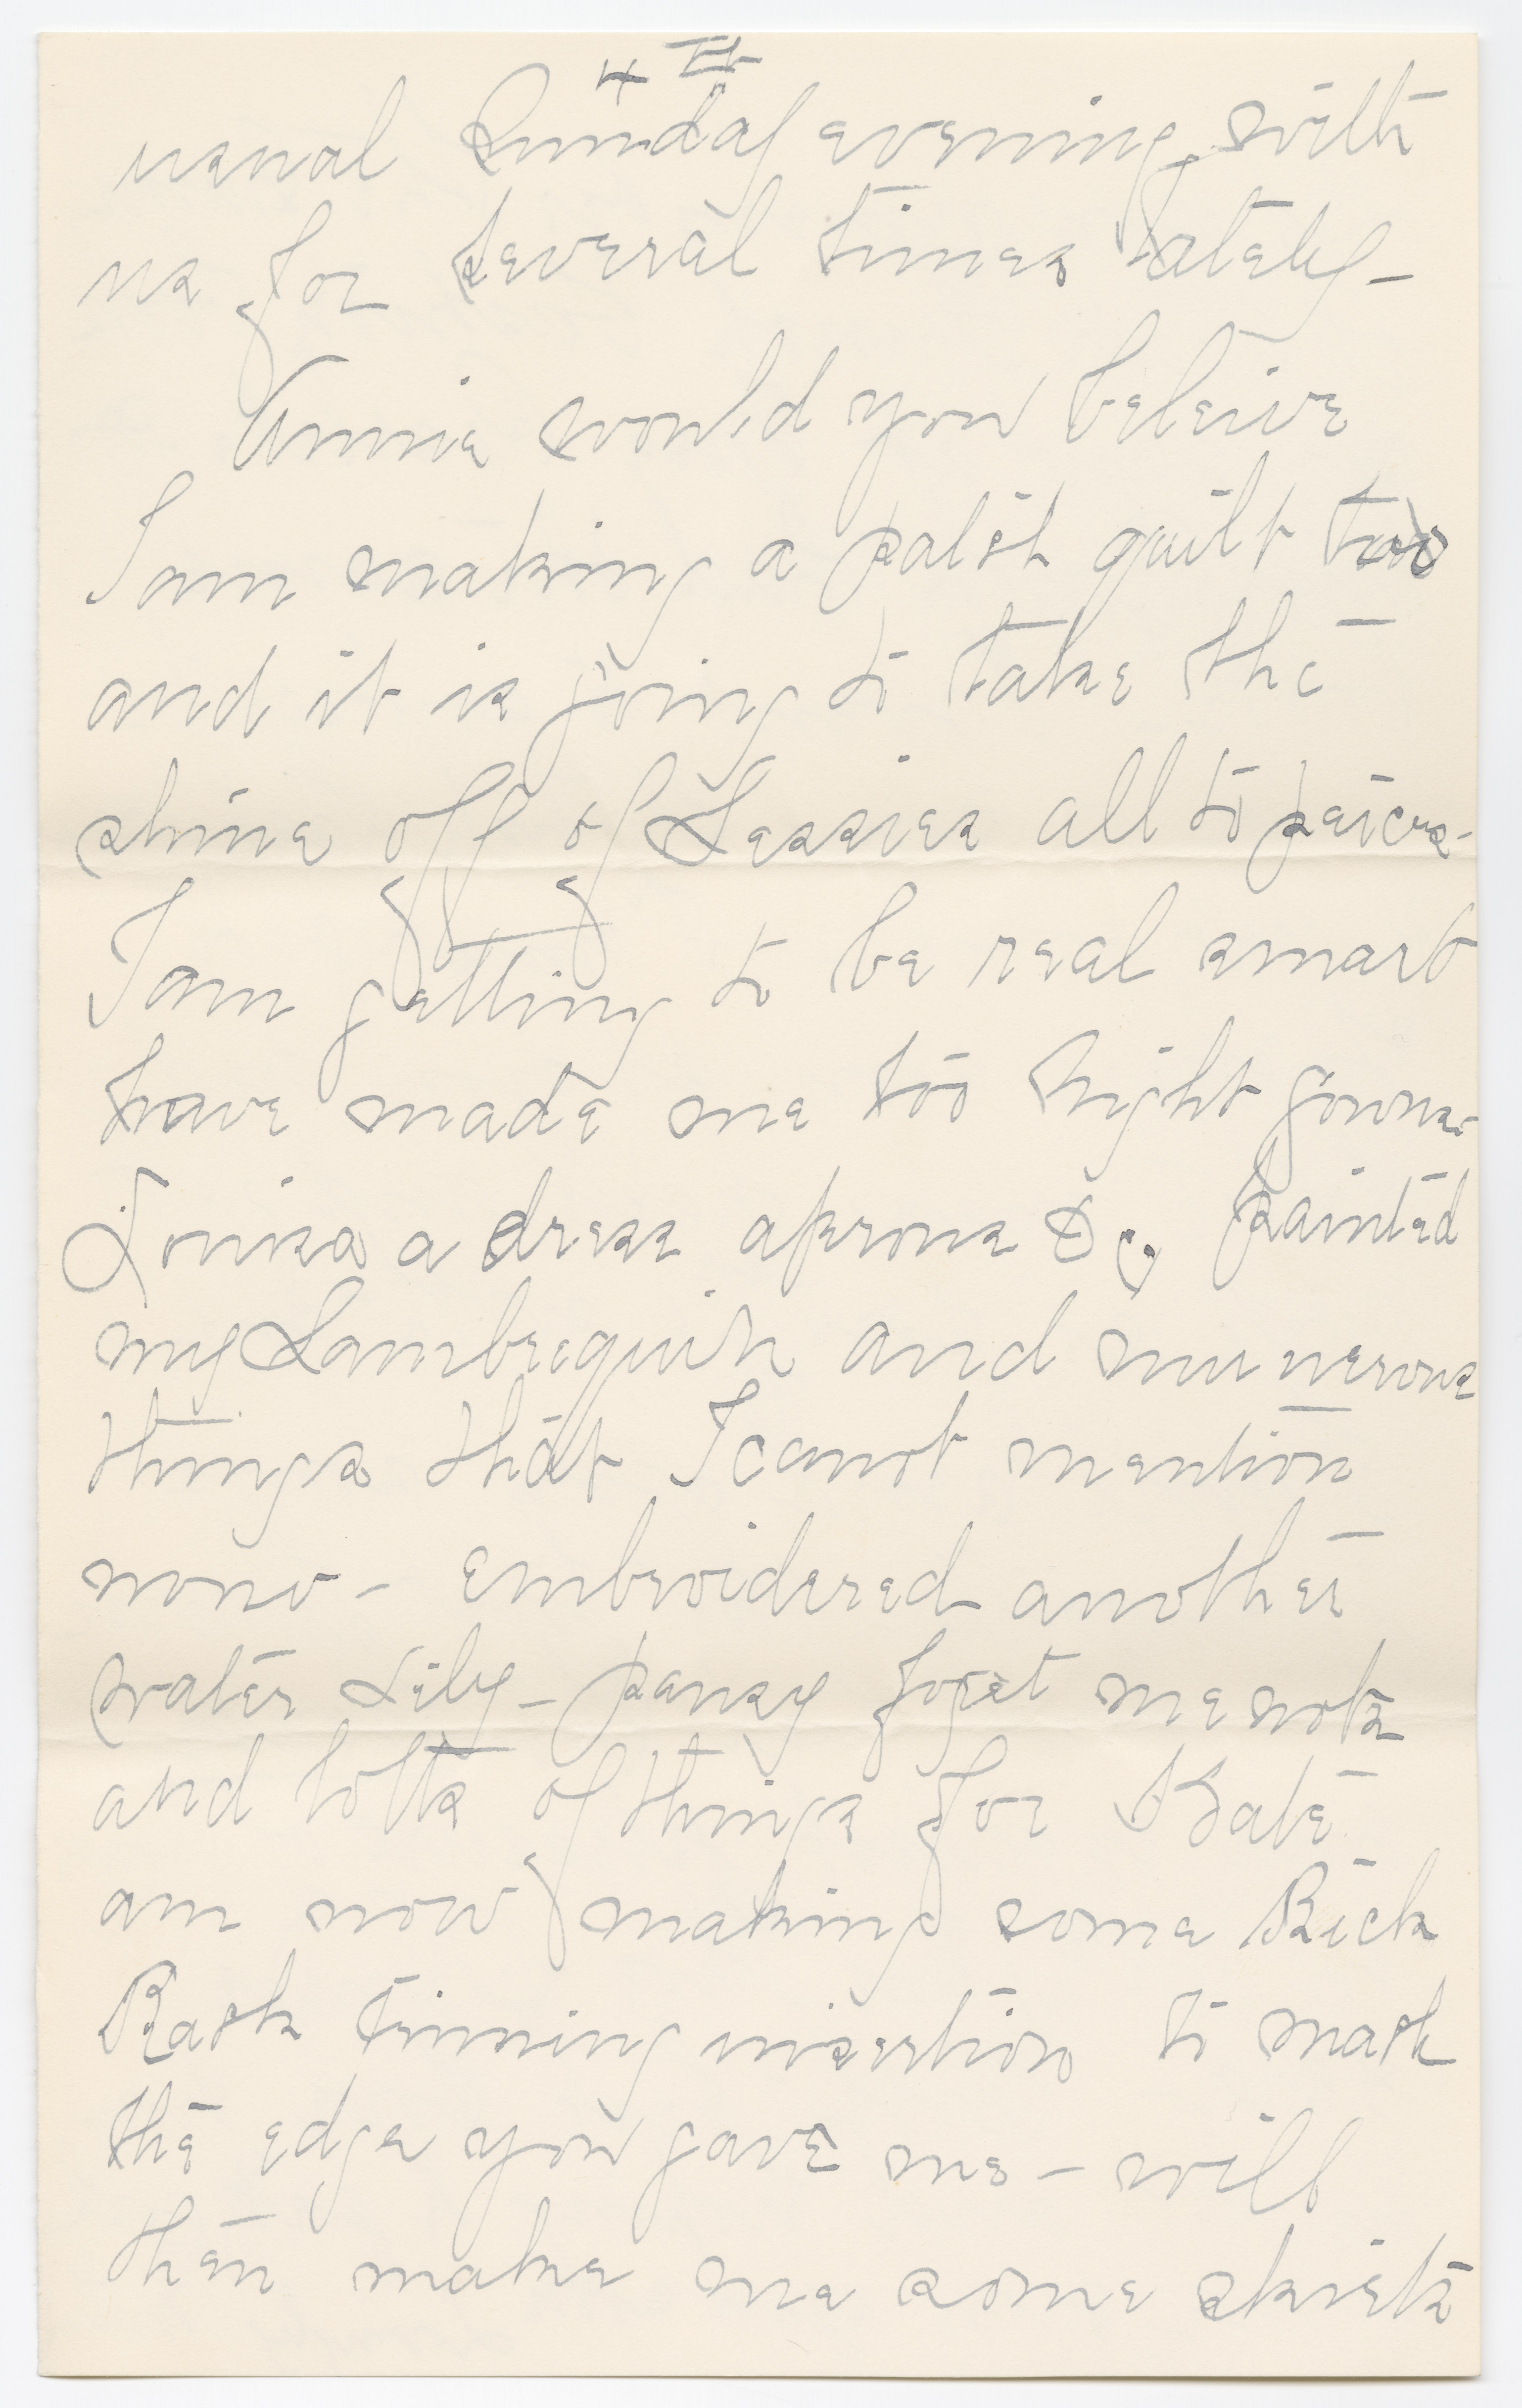 4th
usual Sunday evening with
us for several times lately -
Annie would you beleive
I am making a patch quilt too
and it is going to take the
shine off of Lessies all to peices -
I am getting to be real smart
have made me too Night gowns -
Louisa a dress aprons &c. painted
my Lambrequin and numerous
things that I canot mention
now - embroidered another
water Lily - pansy forget me nots
and lotts of things for Kate
am now making some Rick
Rack insertion to match
the edge you gave me - will
then make me some skirts